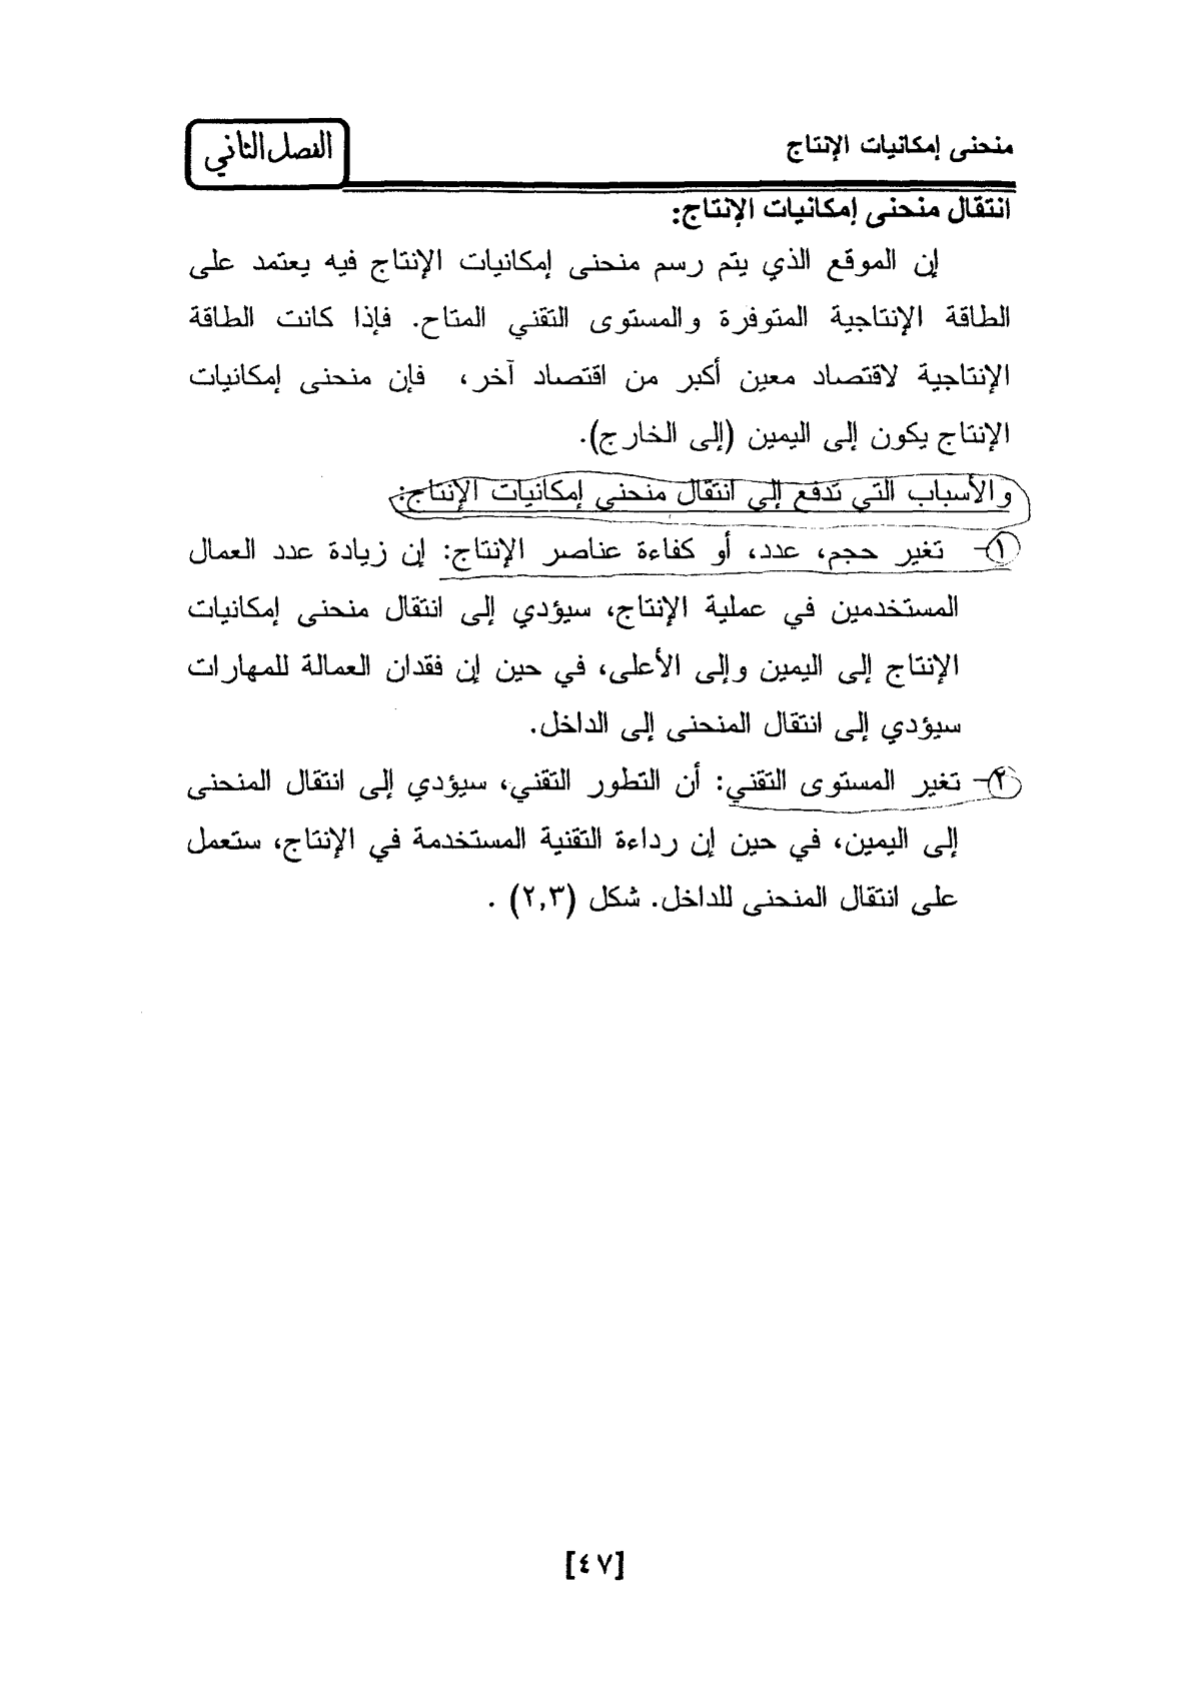 منحنى إمكانيات الإنتاج
الفصل الثاني
انتقال منحنى إمكانيات الإنتاج:
إن الموقع الذي يتم رسم منحنى إمكانيات الإنتاج فيه يعتمد على
الطاقة الإنتاجية المتوفرة والمستوى التقني المتاح. فإذا كانت الطاقة
الإنتاجية لاقتصاد معين أكبر من اقتصاد آخر، فإن منحنى إمكانيات
الإنتاج يكون إلى اليمين (إلى الخارج).
والأسباب التي تدفع إلى انتقال منحنى إمكانيات الإنتاج:
١- تغير حجم، عدد، أو كفاءة عناصر الإنتاج: إن زيادة عدد العمال
المستخدمين في عملية الإنتاج، سيؤدي إلى انتقال منحنى إمكانيات
الإنتاج إلى اليمين وإلى الأعلى، في حين إن فقدان العمالة للمهارات
سيؤدي إلى انتقال المنحنى إلى الداخل.
٢- تغير المستوى التقني: أن التطور التقني، سيؤدي إلى انتقال المنحنى
إلى اليمين، في حين إن رداءة التقنية المستخدمة في الإنتاج، ستعمل
على انتقال المنحنى للداخل. شكل (٢,٣) .
[٤٧]